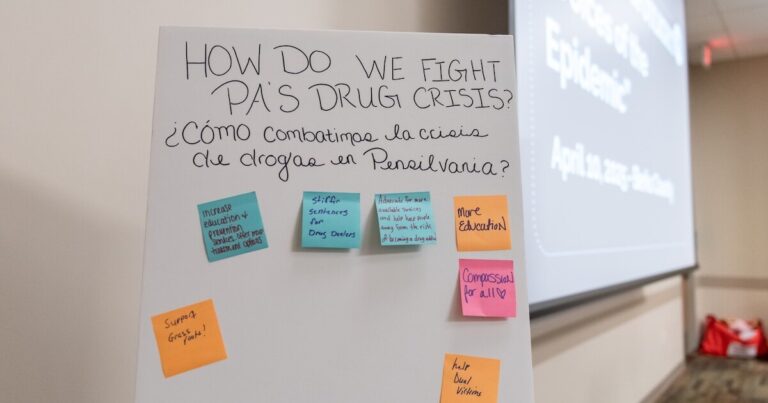 HOW DO WE FIGHT
PA'S DRUG CRISIS?
¿Cómo combatimos la crisis
de drogas en Pensilvania?
Increase
education &
prevention
stiffer
sentences
for
Drug Dealers
Advocate for more
available services
and help keep people
away from the risk
of becoming a drug addict
More
Education
Compassion
for all ♡
Support
Grass
roots!
help
Dual
Victims
of the
Epidemic"
April 10, 2025 -